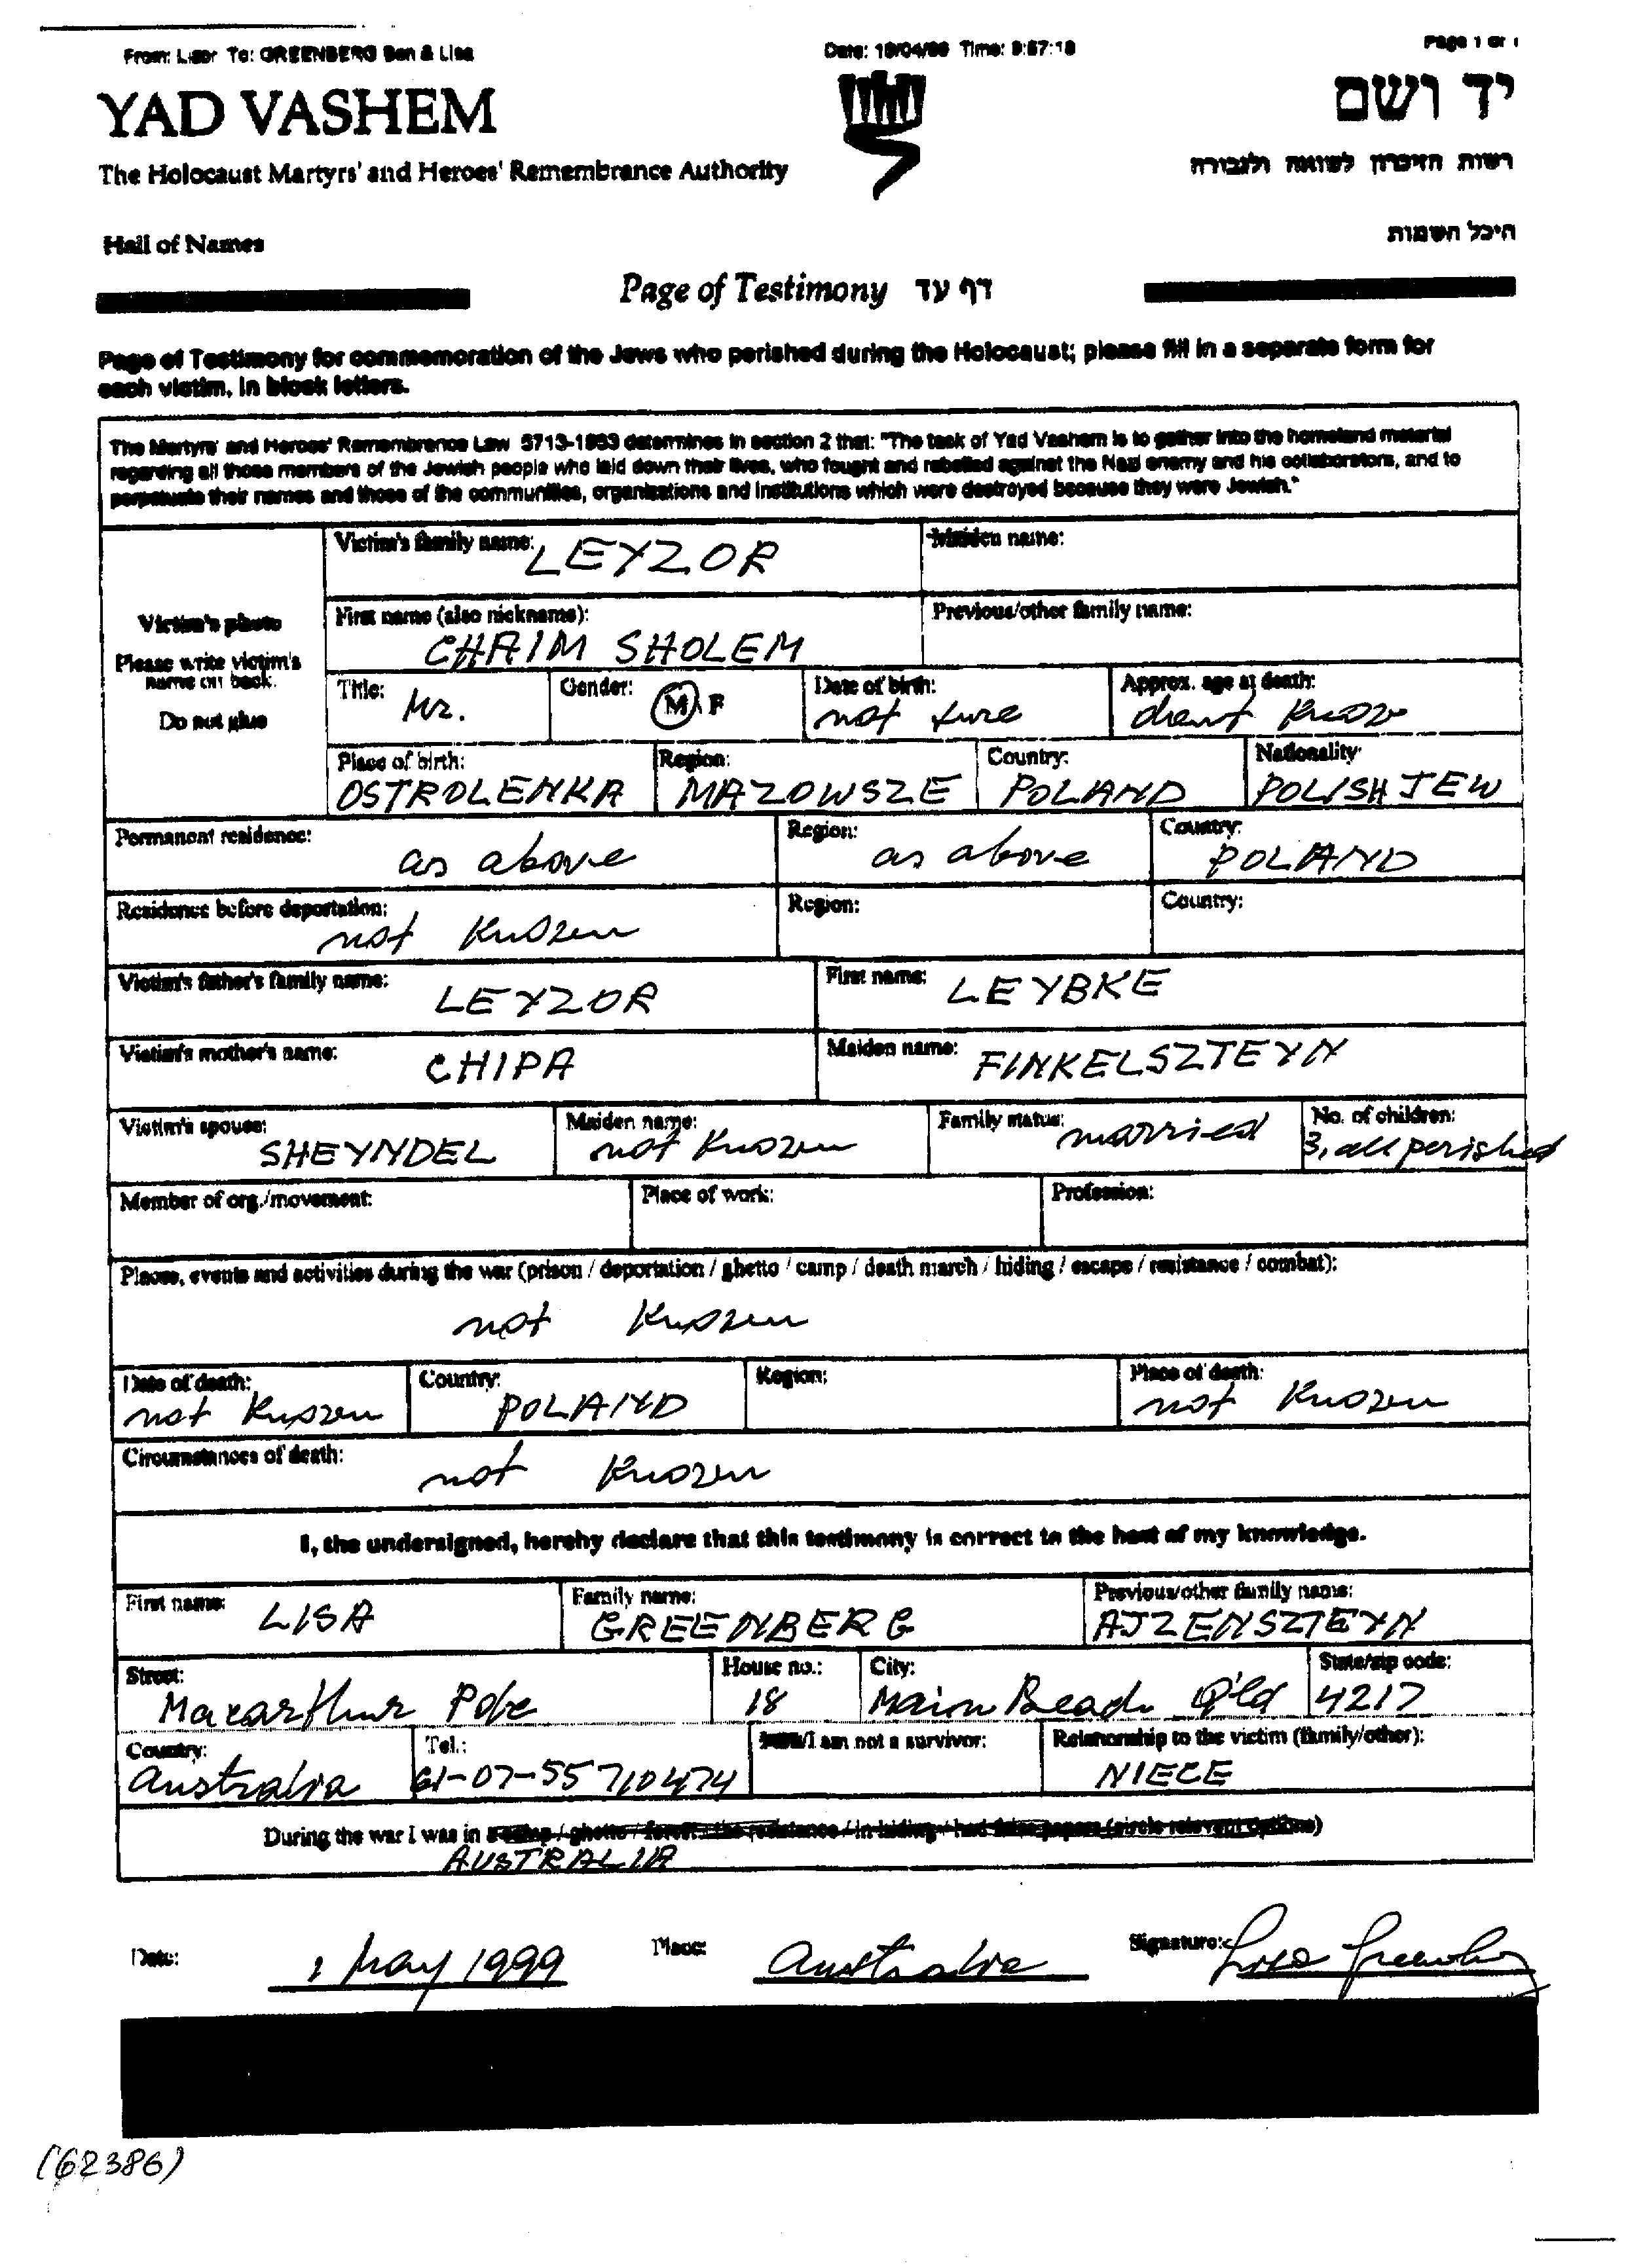 From: Lazer To: GREENBERG Ben & Lisa Date: 19/04/99 Time: 9:57:18 Page 1 of 1
YAD VASHEM יד ושם
The Holocaust Martyrs' and Heroes' Remembrance Authority רשות הזיכרון לשואה ולגבורה
Hall of Names היכל השמות
Page of Testimony דף עד
Page of Testimony for commemoration of the Jews who perished during the Holocaust; please fill in a separate form for
each victim, in block letters.
The Martyrs' and Heroes' Remembrance Law 5713-1953 determines in section 2 that: "The task of Yad Vashem is to gather into the homeland material
regarding all those members of the Jewish people who laid down their lives, who fought and rebelled against the Nazi enemy and his collaborators, and to
perpetuate their names and those of the communities, organizations and institutions which were destroyed because they were Jewish."
Victim's photo
Please write victim's
name on back.
Do not glue
Victim's family name: LEYZOR Maiden name:
First name (also nickname): Previous/other family name:
CHAIM SHOLEM
Title: Mr. Gender: M / F Date of birth: not sure Approx. age at death: don't know
Place of birth: Region: Country: Nationality
OSTROLENKA MAZOWSZE POLAND POLISH JEW
Permanent residence: as above Region: as above Country: POLAND
Residence before deportation: not known Region: Country:
Victim's father's family name: LEYZOR First name: LEYBKE
Victim's mother's name: CHIPA Maiden name: FINKELSZTEYN
Victim's spouse: SHEYNDEL Maiden name: not known Family status: married No. of children: 3, all perished
Member of org./movement: Place of work: Profession:
Places, events and activities during the war (prison / deportation / ghetto / camp / death march / hiding / escape / resistance / combat):
not known
Date of death: not known Country: POLAND Region: Place of death: not known
Circumstances of death: not known
I, the undersigned, hereby declare that this testimony is correct to the best of my knowledge.
First name: LISA Family name: GREENBERG Previous/other family name: AJZENSZTEYN
Street: Macarthur Pde House no.: 18 City: Main Beach Q'ld State/zip code: 4217
Country: Australia Tel.: 61-07-55710474 I am not a survivor: Relationship to the victim (family/other): NIECE
During the war I was in a camp / ghetto / forest / the resistance / in hiding / had false papers (circle relevant options)
AUSTRALIA
Date: 1 May 1999 Place: Australia Signature: Lisa Greenberg
(62386)